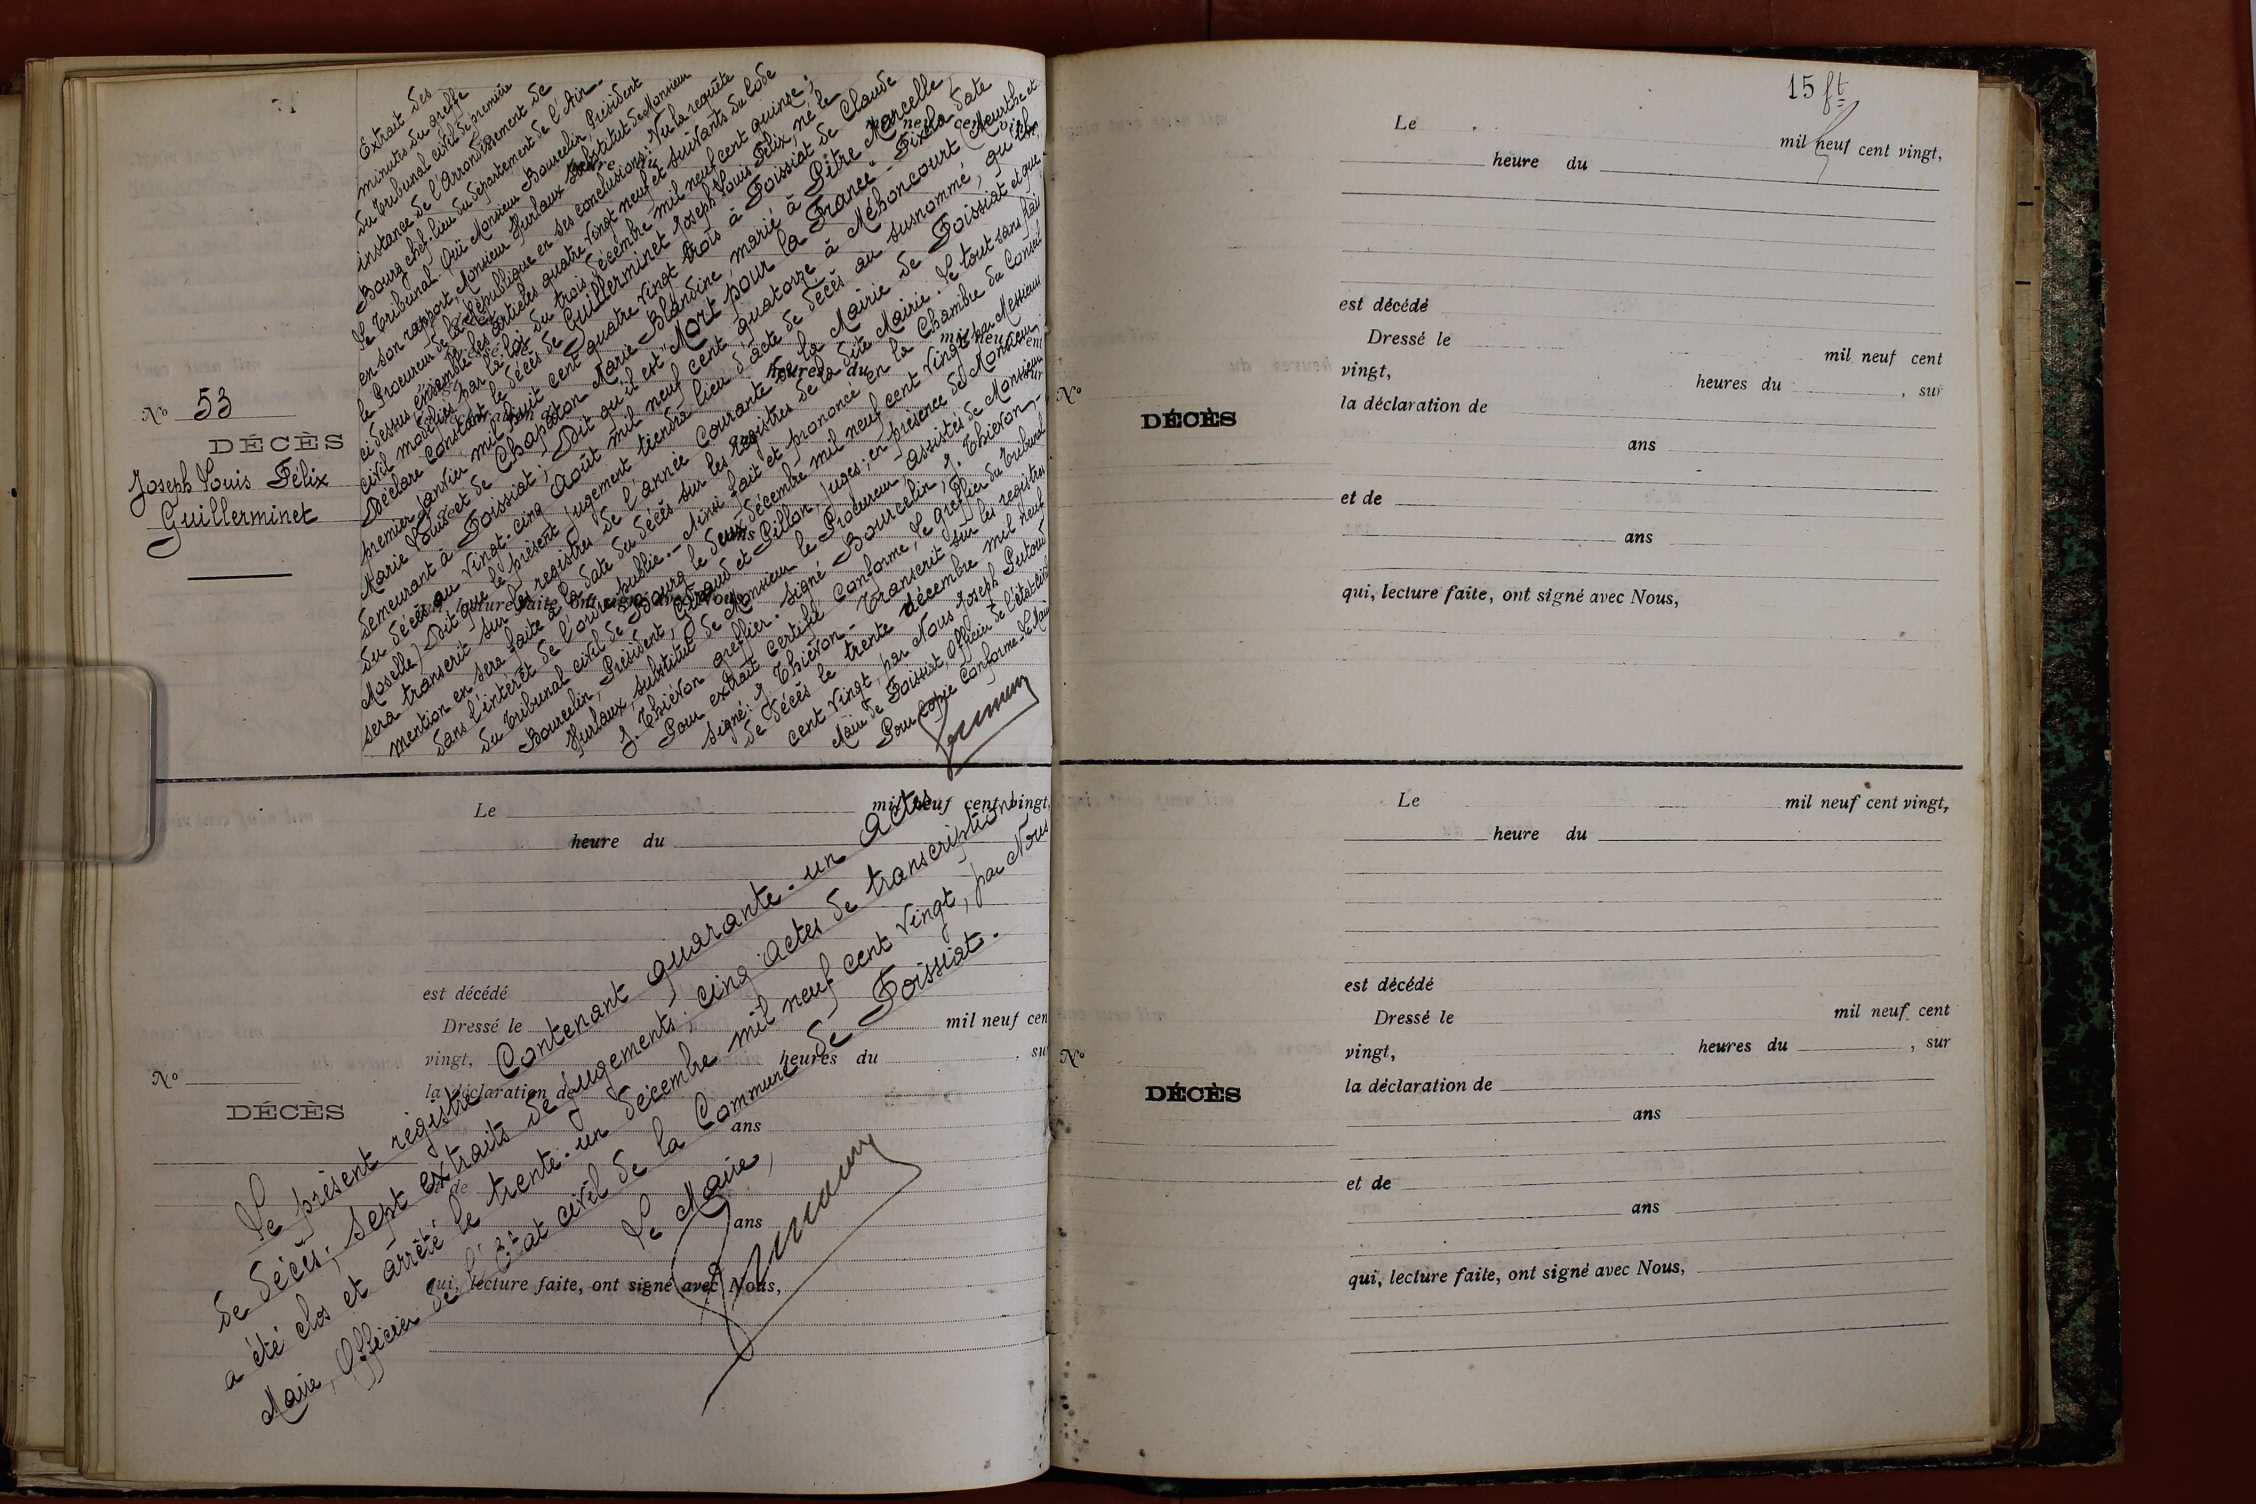 N° 53
DÉCÈS
Joseph Louis Félix
Guillerminet
Extrait des
minutes du greffe
du Tribunal civil de première
instance de l'Arrondissement de
Bourg chef-lieu du département de l'Ain.
Le Tribunal. Ouï Monsieur Bourcelin, Président
en son rapport, Monsieur Hurlaux Substitut de Monsieur
le Procureur de la République en ses conclusions; Vu la requête
ci dessus ensemble les articles quatre vingt neuf et suivants du Code
civil modifiés par la loi du trois décembre mil neuf cent quinze;
Déclare constant le décès de Guillerminet Joseph Louis Félix, né le
premier janvier mil huit cent quatre vingt trois à Foissiat de Claude
Marie Louis et de Chapaton Marie Blandine, marié à Pitre Marcelle
demeurant à Foissiat; Dit qu'il est "Mort pour la France". Fixe la date
du décès au vingt-cinq août mil neuf cent quatorze à Méhoncourt (Meurthe et
Moselle) Dit que le présent jugement tiendra lieu d'acte de décès au susnommé, qu'il
sera transcrit sur les registres de l'année courante de la Mairie de Foissiat et que
mention en sera faite à la date du décès sur les registres de la dite Mairie. Le tout sans frais
dans l'intérêt de l'ordre public. - Ainsi fait et prononcé en la Chambre du Conseil
du Tribunal civil de Bourg le deux décembre mil neuf cent vingt par Messieurs
Bourcelin, Président, Giraud et Pillon, juges; en présence de Monsieur
Hurlaux, substitut de Monsieur le Procureur, assistés de Monsieur
J. Thiévon greffier. Signé Bourcelin, J. Thiévon.
Pour extrait certifié conforme, Le greffier du Tribunal
signé: J. Thiévon - Transcrit sur les registres
de décès le trente décembre mil neuf
cent vingt, par Nous Joseph
Maire de Foissiat, officier de l'état civil
Pour copie conforme. Le Maire
heures du
mil neuf cent
qui, lecture faite, ont signé avec Nous,
Le mil neuf cent vingt,
heure du
est décédé
Dressé le mil neuf cen
vingt, heures du , su
la déclaration de
ans
N°
DÉCÈS
et de
ans
qui, lecture faite, ont signé avec Nous,
Le présent registre Contenant quarante-un Actes
de décès; sept extraits de jugements; cinq actes de transcriptions
a été clos et arrêté le trente-un décembre mil neuf cent vingt, par Nous
Maire, Officier de l'État civil de la Commune de Foissiat.
Le Maire,
15 ft
Le mil neuf cent vingt,
heure du
est décédé
Dressé le mil neuf cent
vingt, heures du , sur
N°
DÉCÈS
la déclaration de
ans
et de
ans
qui, lecture faite, ont signé avec Nous,
Le mil neuf cent vingt,
heure du
est décédé
Dressé le mil neuf cent
vingt, heures du , sur
N°
DÉCÈS
la déclaration de
ans
et de
ans
qui, lecture faite, ont signé avec Nous,